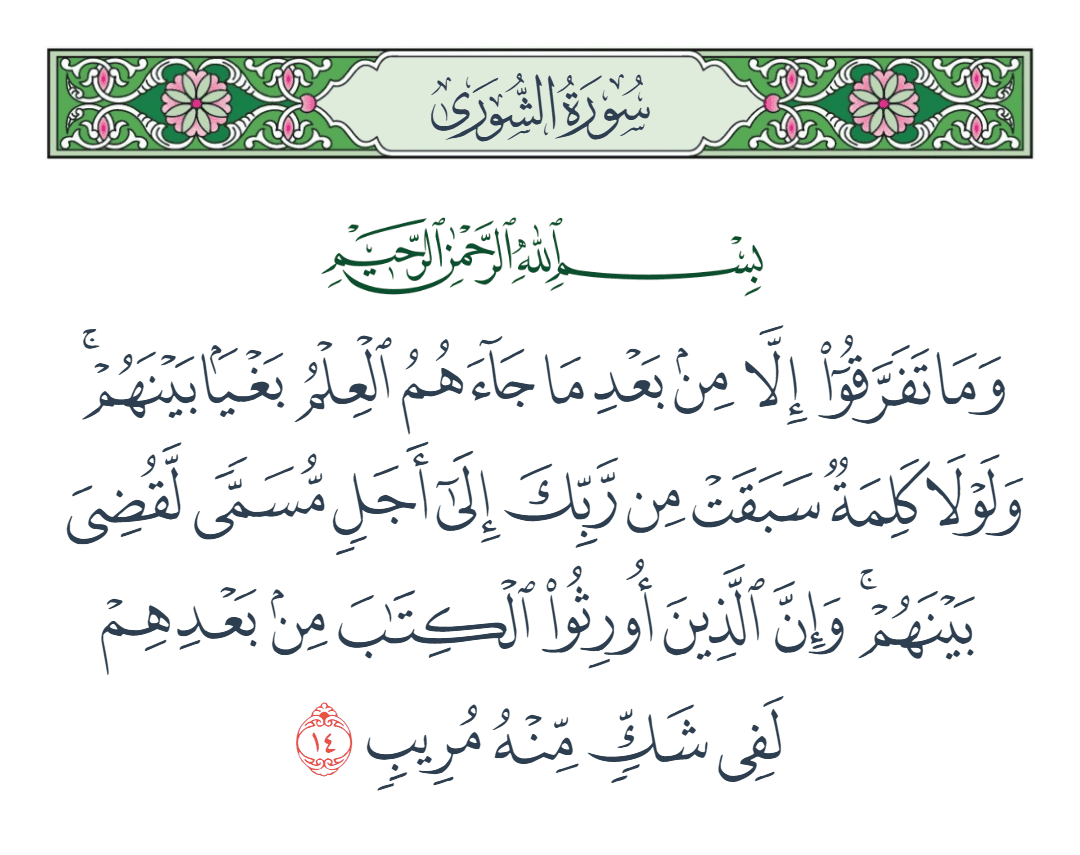 سُورَةُ الشُّورَىٰ
بِسْمِ ٱللَّهِ ٱلرَّحْمَٰنِ ٱلرَّحِيمِ
وَمَا تَفَرَّقُوٓا۟ إِلَّا مِنۢ بَعْدِ مَا جَآءَهُمُ ٱلْعِلْمُ بَغْيًۢا بَيْنَهُمْ ۚ
وَلَوْلَا كَلِمَةٌ سَبَقَتْ مِن رَّبِّكَ إِلَىٰٓ أَجَلٍ مُّسَمًّى لَّقُضِىَ
بَيْنَهُمْ ۚ وَإِنَّ ٱلَّذِينَ أُورِثُوا۟ ٱلْكِتَٰبَ مِنۢ بَعْدِهِمْ
لَفِى شَكٍّ مِّنْهُ مُرِيبٍ ١٤